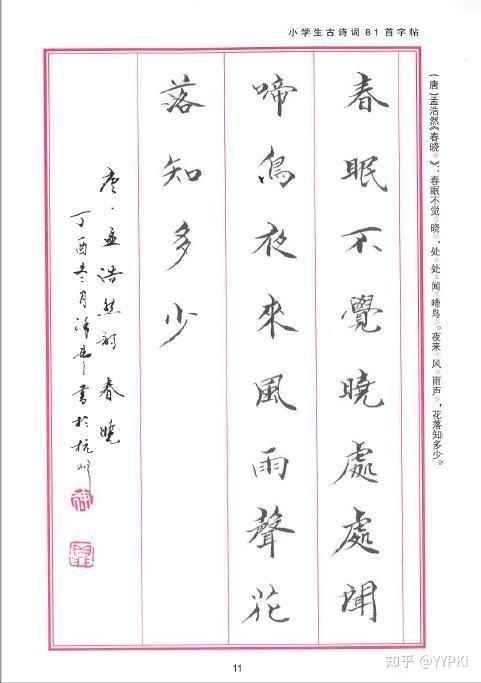 小学生古诗词81首字帖
(唐)孟浩然《春晓》：春眠不觉晓，处处闻啼鸟。夜来风雨声，花落知多少。
春眠不覺曉處處聞
啼鳥夜來風雨聲花
落知多少
唐·孟浩然詩春曉
丁酉冬月書於杭州
11
知乎 @YYPKi